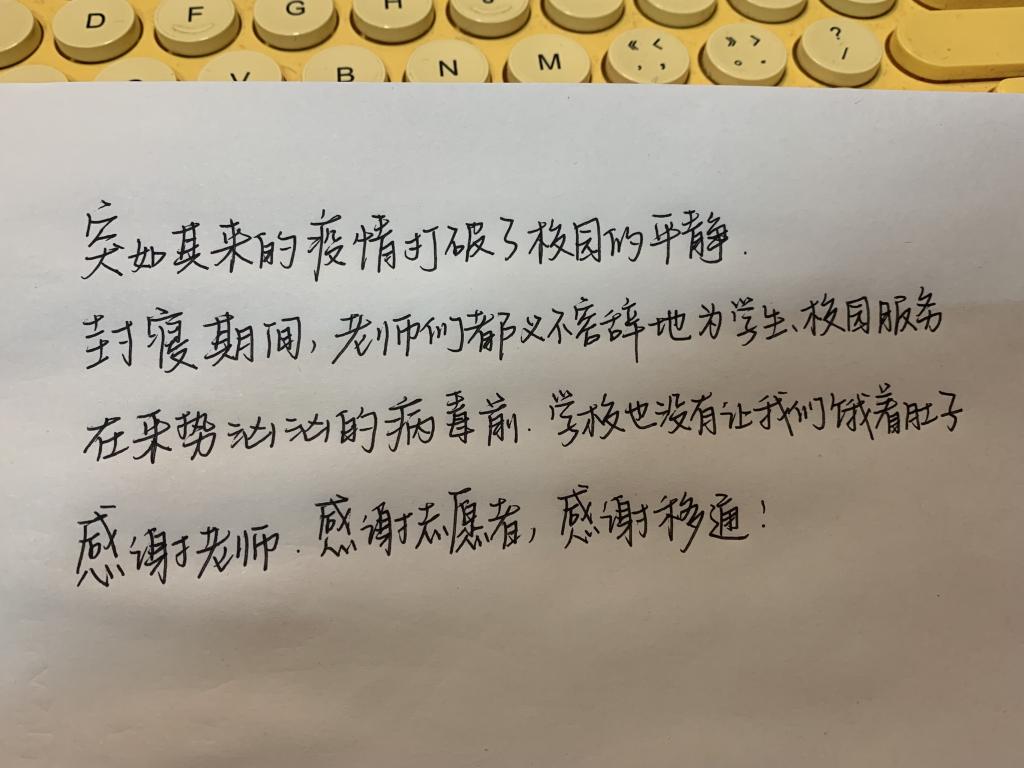 D F G H
V B N M 《 < ， , 》 > 。 . ? /
突如其来的疫情打破了校园的平静.
封寝期间,老师们都义不容辞地为学生、校园服务
在来势汹汹的病毒前.学校也没有让我们饿着肚子
感谢老师.感谢志愿者,感谢移通!